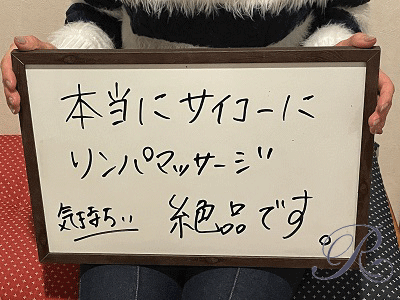 本当にサイコーに
リンパマッサージ
気持ちいい 絶品です。
R